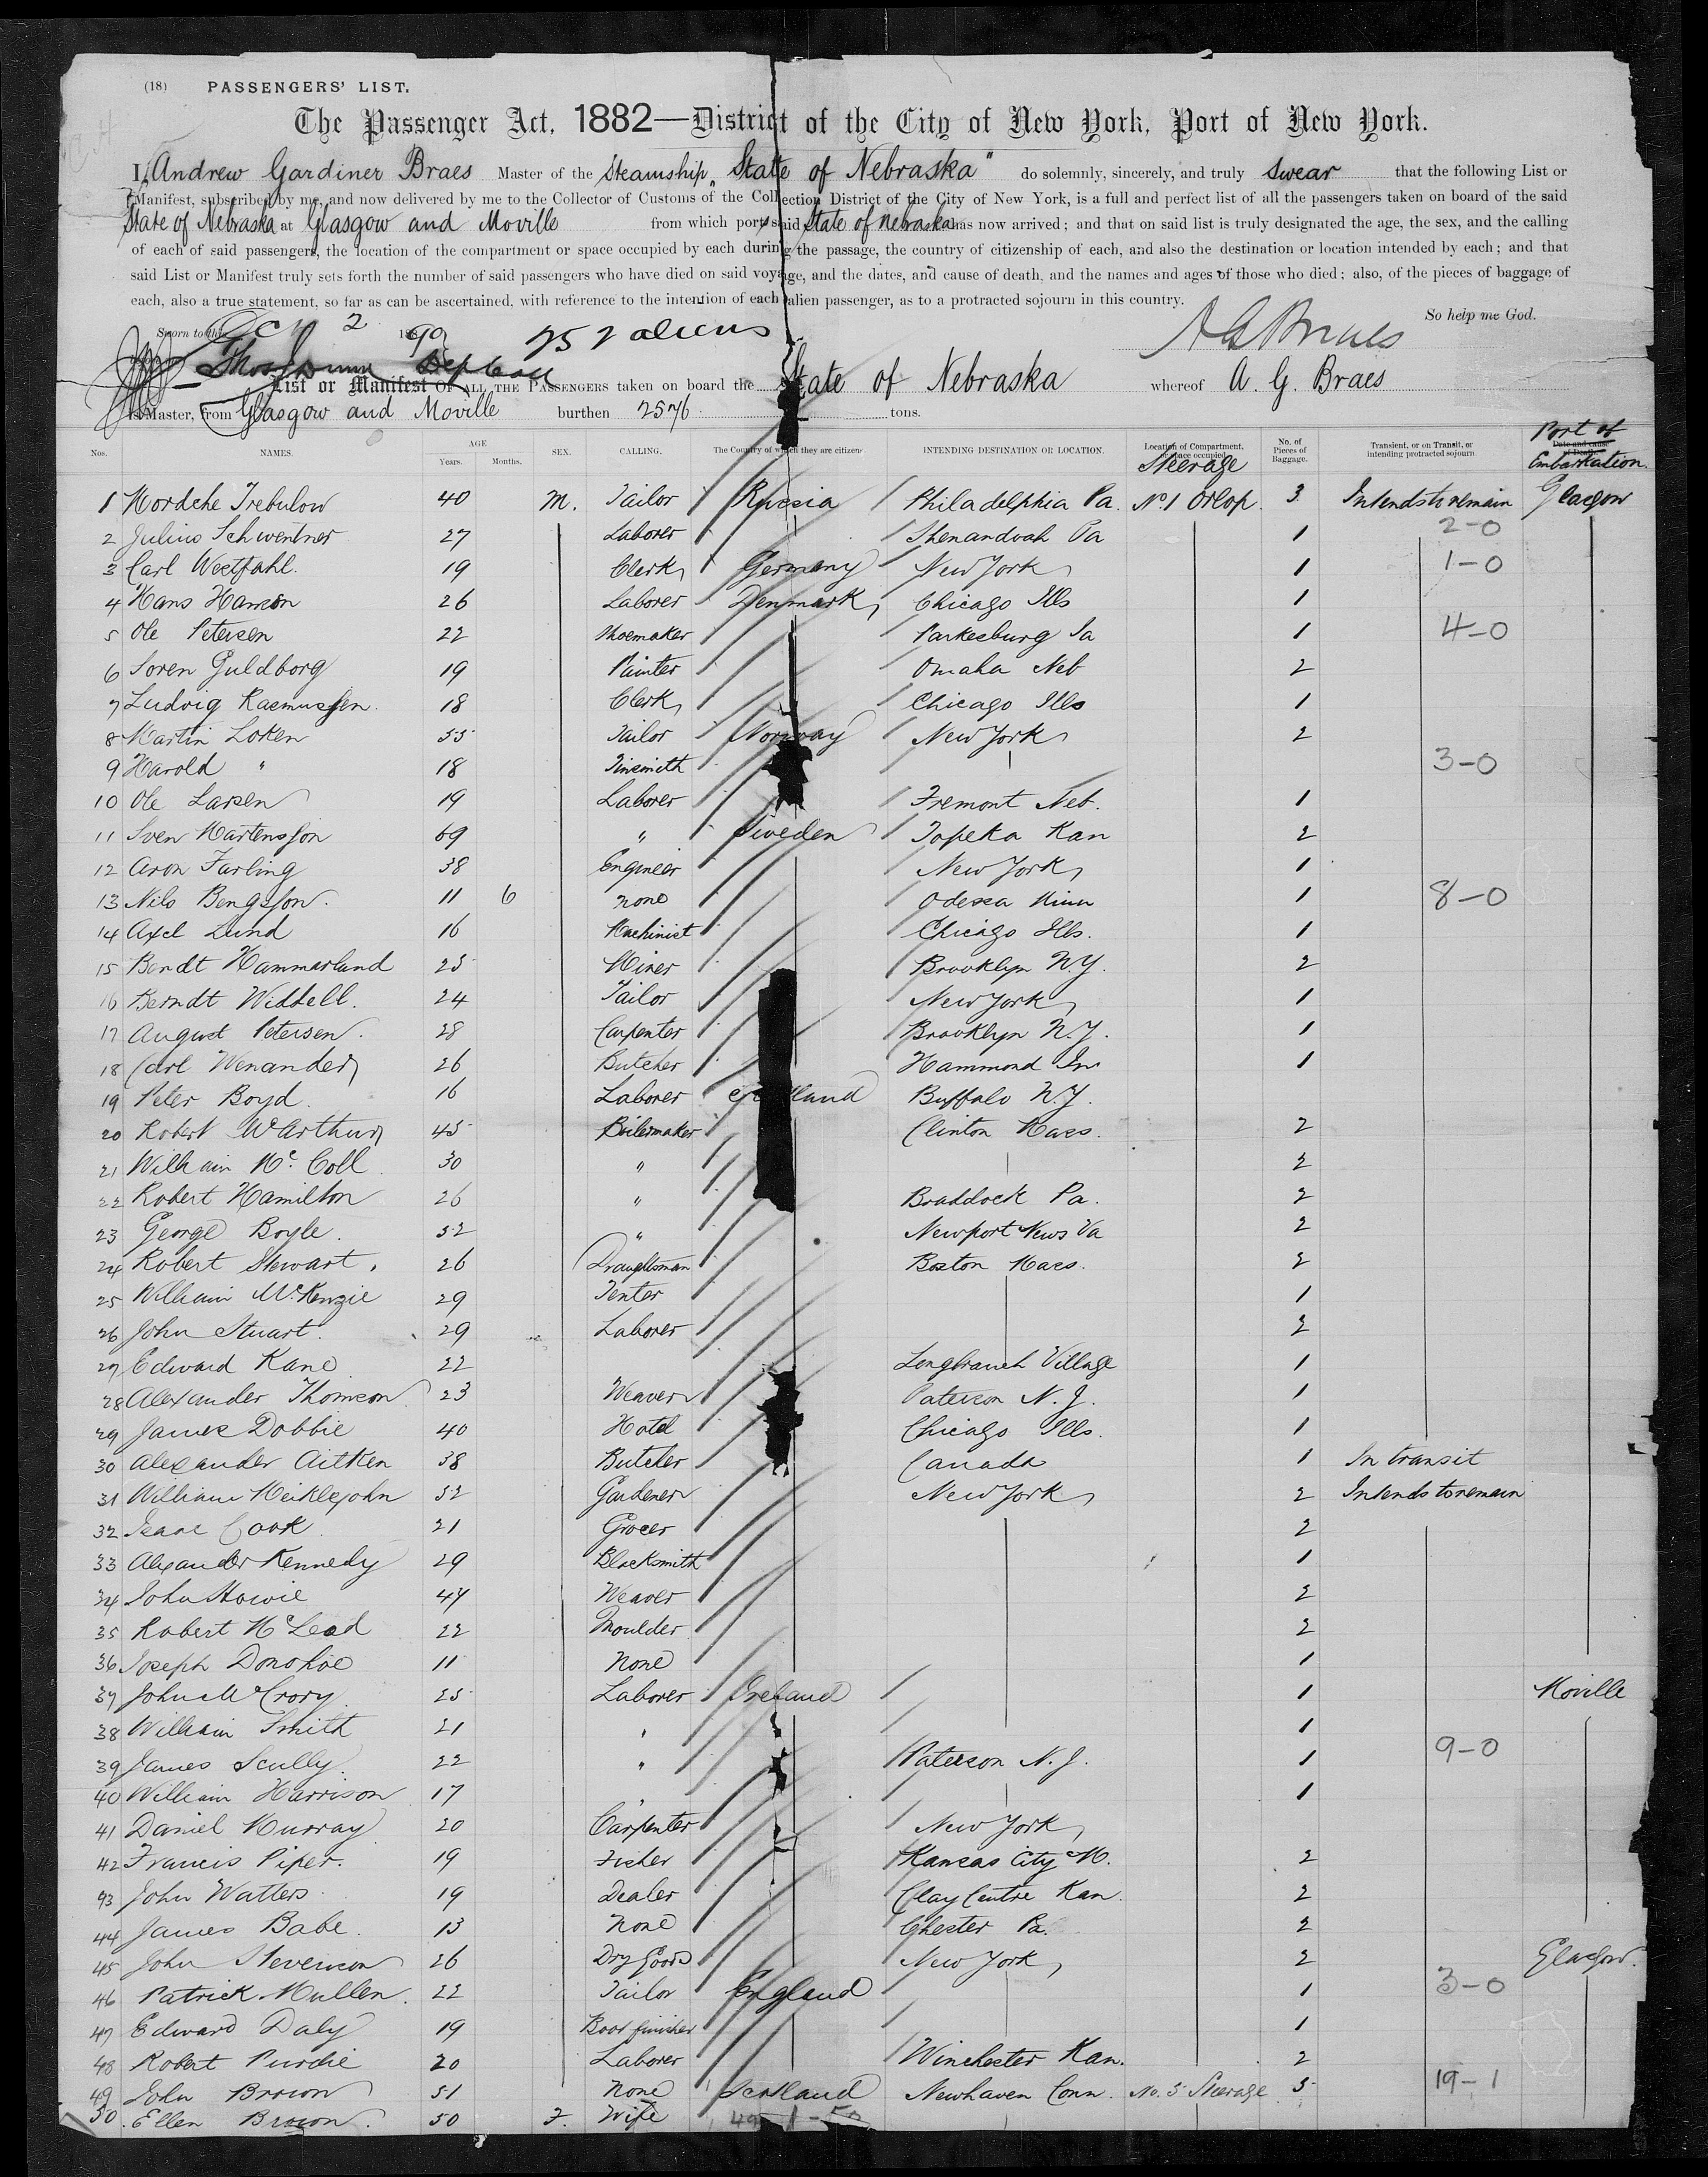 (18) PASSENGERS' LIST.
The Passenger Act, 1882—District of the City of New York, Port of New York.
I, Andrew Gardiner Braes Master of the Steamship "State of Nebraska" do solemnly, sincerely, and truly swear that the following List or
Manifest, subscribed by me, and now delivered by me to the Collector of Customs of the Collection District of the City of New York, is a full and perfect list of all the passengers taken on board of the said
State of Nebraska at Glasgow and Moville from which port said State of Nebraska has now arrived; and that on said list is truly designated the age, the sex, and the calling
of each of said passengers, the location of the compartment or space occupied by each during the passage, the country of citizenship of each, and also the destination or location intended by each; and that
said List or Manifest truly sets forth the number of said passengers who have died on said voyage, and the dates, and cause of death, and the names and ages of those who died; also, of the pieces of baggage of
each, also a true statement, so far as can be ascertained, with reference to the intention of each alien passenger, as to a protracted sojourn in this country.
So help me God.
Sworn to this Oct 2 1890 252 aliens A G Braes
List or Manifest OF ALL THE PASSENGERS taken on board the State of Nebraska whereof A. G. Braes
is Master, from Glasgow and Moville burthen 2576 tons.
Nos. NAMES. AGE Years. Months. SEX. CALLING. The Country of which they are citizens INTENDING DESTINATION OR LOCATION. Location of Compartment, or space occupied Steerage No. of Pieces of Baggage. Transient, or on Transit, or intending protracted sojourn Date and cause of Death Port of Embarkation.
1 Mordche Trebulow 40 M. Tailor Russia Philadelphia Pa. No. 1 Orlop. 3 Intends to remain Glasgow
2 Julius Schwentner 27 Laborer Shenandoah Pa 1 2-0
3 Carl Westfahl. 19 Clerk Germany New York 1 1-0
4 Hans Hansen 26 Laborer Denmark Chicago Ills 1
5 Ole Petersen 22 Shoemaker Parkesburg Ia 1 4-0
6 Soren Guldborg 19 Painter Omaha Neb 2
7 Ludvig Rasmussen. 18 Clerk Chicago Ills 1
8 Martin Loken 35 Tailor Norway New York 2
9 Harold " 18 Tinsmith 3-0
10 Ole Larsen 19 Laborer Fremont Neb. 1
11 Sven Martensson 69 " Sweden Topeka Kan 2
12 Aron Farling 38 Engineer New York 1
13 Nils Bengsson. 11 6 none Odessa Minn 1 8-0
14 Axel Lund 16 Machinist Chicago Ills. 1
15 Bendt Hammarlund 25 Miner Brooklyn N.Y. 2
16 Berndt Widdell. 24 Tailor New York 1
17 August Petersen. 28 Carpenter Brooklyn N.Y. 1
18 Carl Wenander 26 Butcher Hammond In 1
19 Peter Boyd. 16 Laborer Scotland Buffalo N.Y.
20 Robert McArthur 45 Boilermaker Clinton Mass. 2
21 William Mc. Coll 30 " 2
22 Robert Hamilton 26 " Braddock Pa. 2
23 George Boyle. 32 " Newport News Va 2
24 Robert Stewart. 26 Draughtsman Boston Mass. 2
25 William McKenzie 29 Tenter 1
26 John Stuart. 29 Laborer 2
27 Edward Kane 22 Longbranch Village 1
28 Alexander Thomson 23 Weaver Paterson N. J. 1
29 James Dobbie 40 Hotel Chicago Ills. 1
30 Alexander Aitken 38 Butcher Canada 1 In transit
31 William Meiklejohn 32 Gardener New York 2 Intends to remain
32 Isaac Cook 21 Grocer 2
33 Alexander Kennedy 29 Blacksmith 1
34 John Howie 47 Weaver 2
35 Robert McLeod 22 Moulder 2
36 Joseph Donohoe 11 None 1
37 John McCrory. 25 Laborer Ireland 1 Moville
38 William Smith 21 " 1
39 James Scully. 22 " Paterson N. J. 1 9-0
40 William Harrison 17 " 1
41 Daniel Murray 20 Carpenter New York
42 Francis Piper. 19 Fisher Kansas City M. 2
43 John Watters. 19 Dealer Clay Centre Kan. 2
44 James Babe. 13 None Chester Pa. 2
45 John Stevenson 26 Dry Goods New York 2 Glasgow.
46 Patrick Mullen. 22 Tailor England 1 3-0
47 Edward Daly 19 Boot finisher 1
48 Robert Purdie 20 Laborer Winchester Kan. 2
49 John Brown 51 None Scotland Newhaven Conn. No. 5 Steerage 5 19-1
50. Ellen Brown. 50 F. Wife 49-1-50